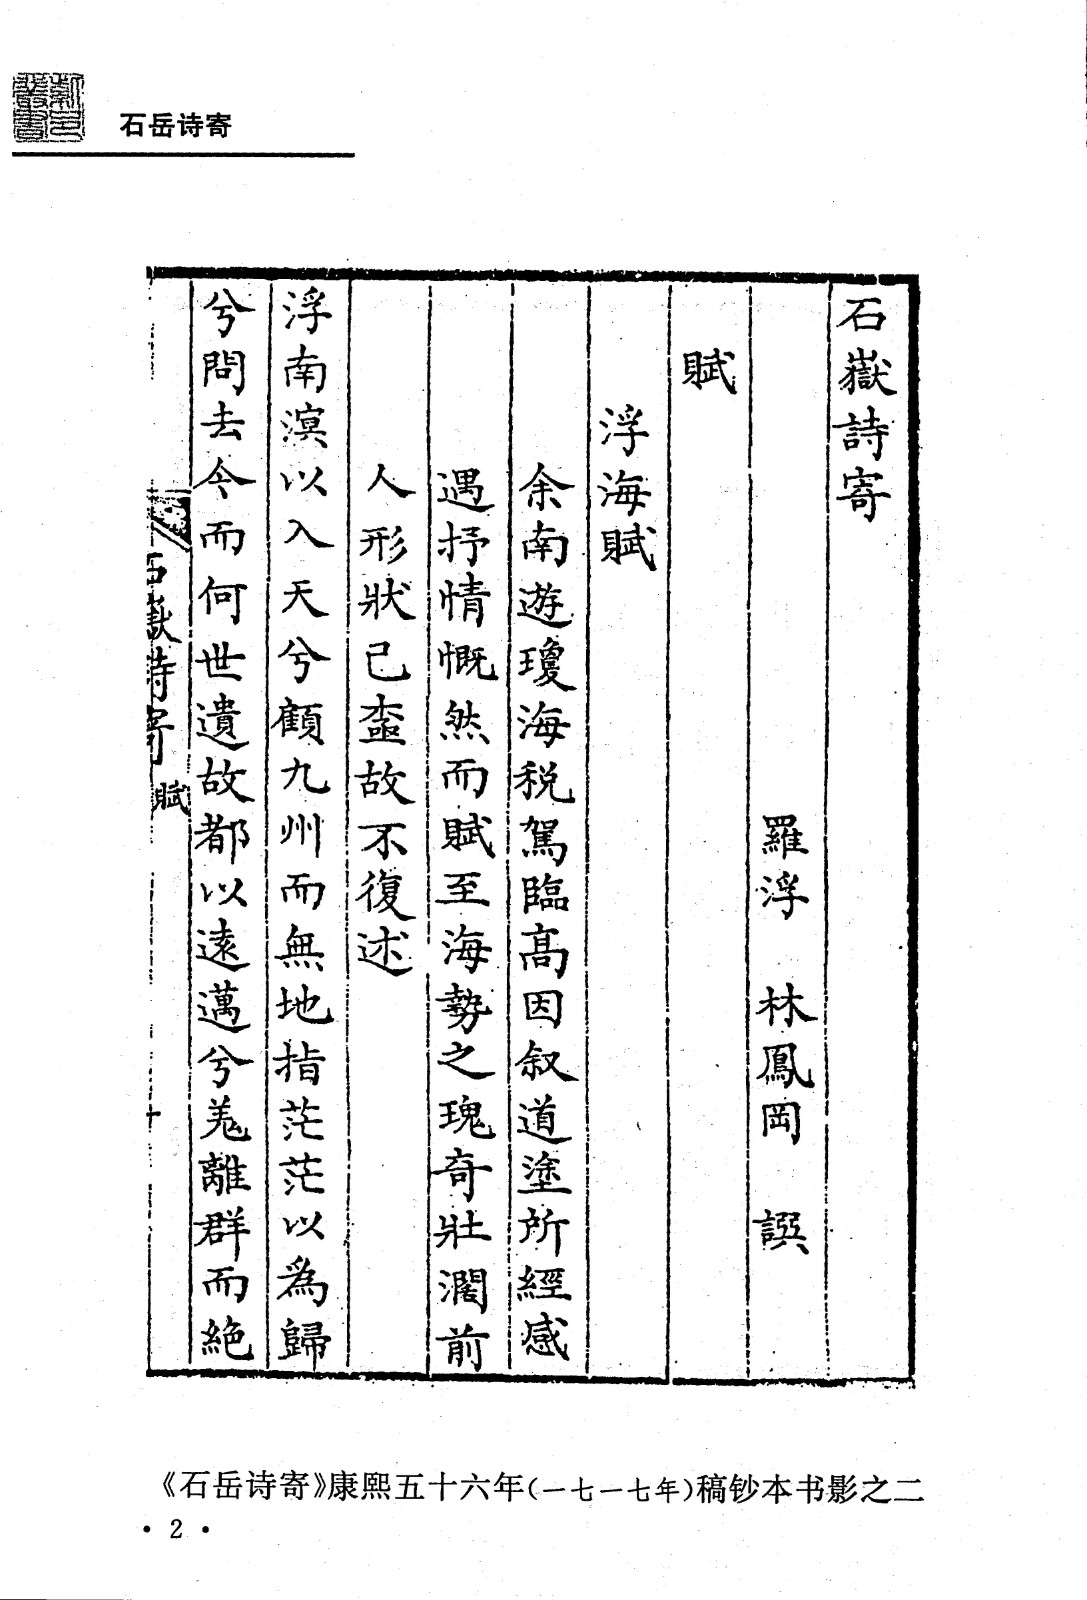 石岳诗寄
石嶽詩寄
羅浮　林鳳岡　譔
賦
浮海賦
余南遊瓊海税駕臨高因叙道塗所經感
遇抒情慨然而賦至海勢之瑰奇壯濶前
人形狀已盡故不復述
浮南溟以入天兮顧九州而無地指茫茫以為歸
兮問去今而何世遺故都以遠邁兮羌離群而絶
石嶽詩寄 賦
《石岳诗寄》康熙五十六年(一七一七年)稿钞本书影之二
· 2 ·